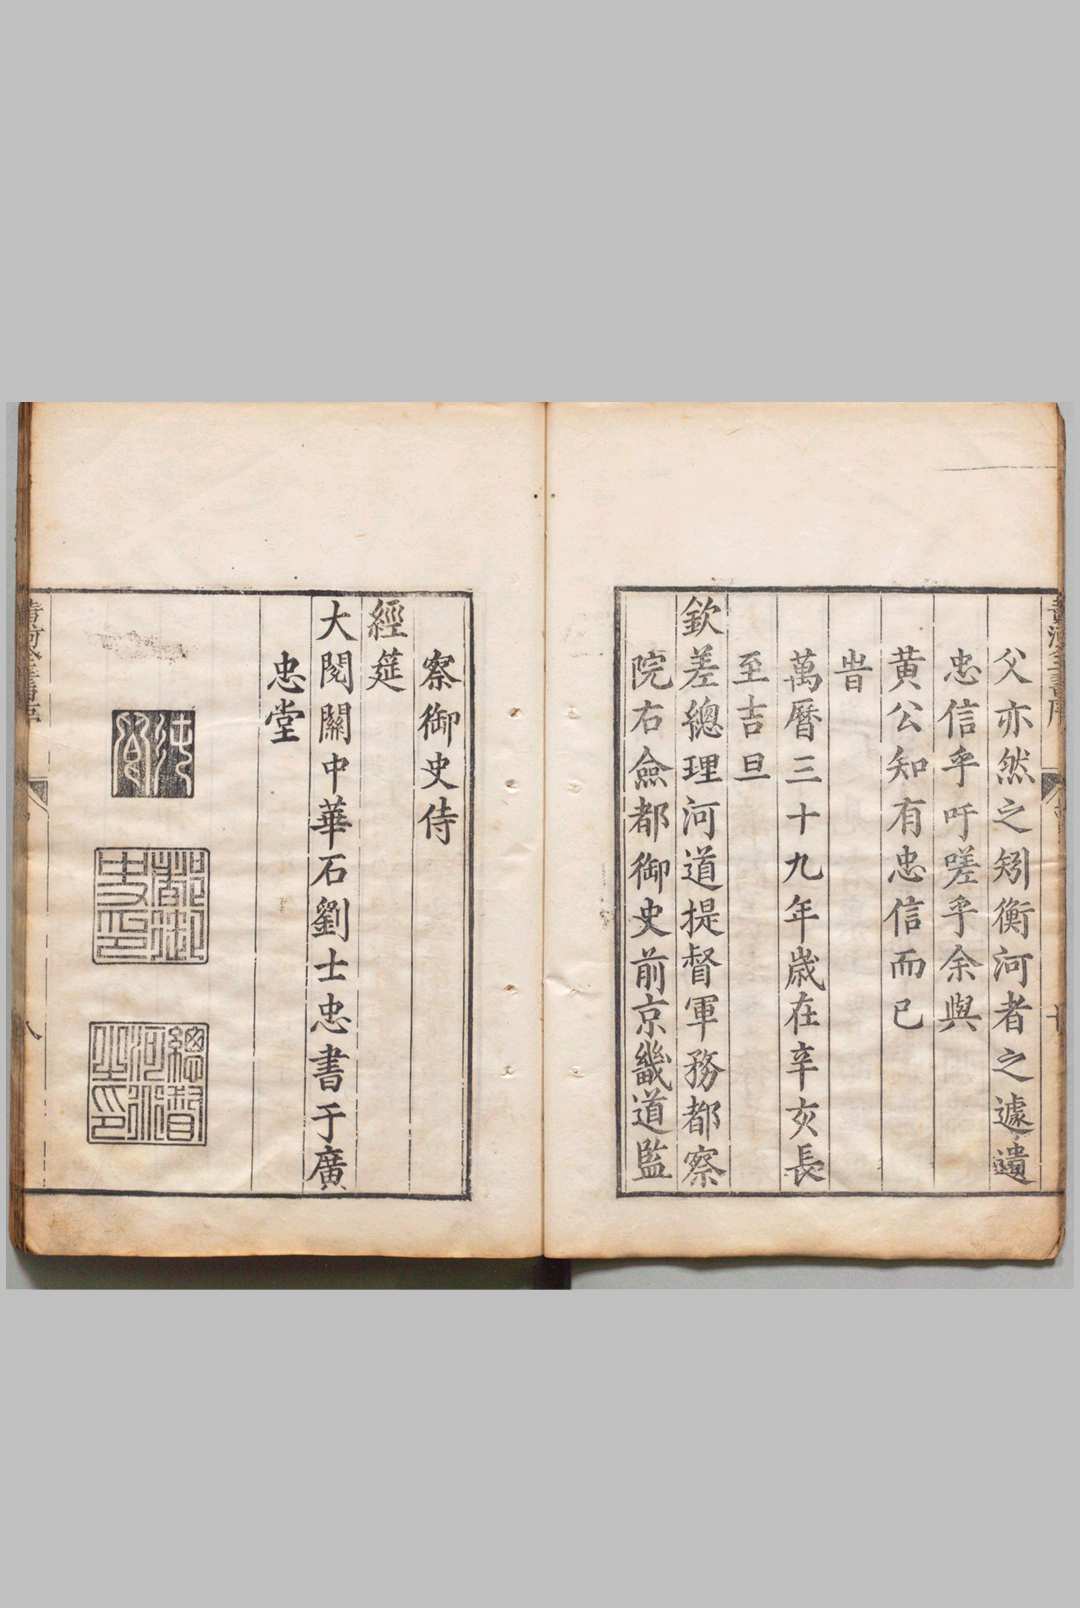 父亦然之矧衡河者之遽遺
忠信乎吁嗟乎余與
黄公知有忠信而已
旹
萬曆三十九年歲在辛亥長
至吉旦
欽差總理河道提督軍務都察
院右僉都御史前京畿道監
察御史侍
經筵
大閱關中華石劉士忠書于廣
忠堂
都御史印
總督河道之印
八